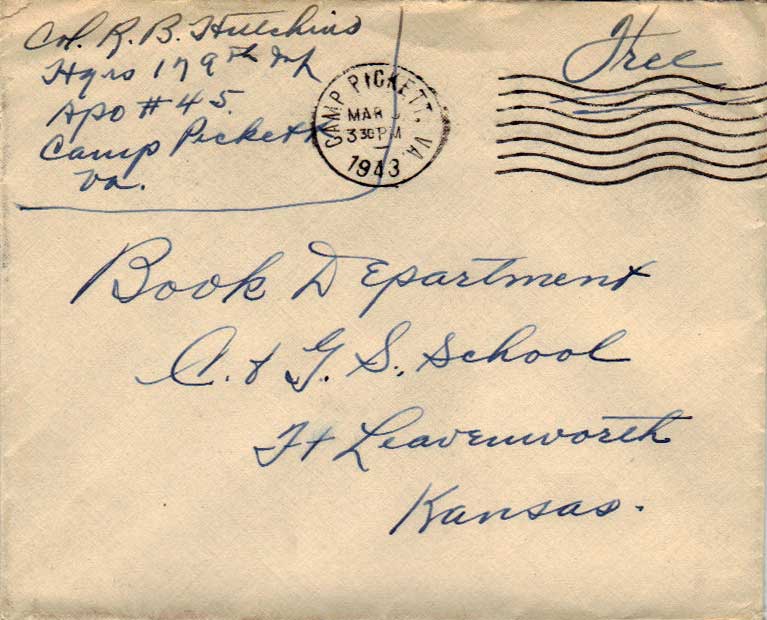 Col. R. B. Hutchins
Hqrs 179th Inf
Apo # 45.
Camp Pickett
Va.
CAMP PICKETT, VA.
MAR
330 PM
1943
Free
Book Department
C. & G. S. School
Ft Leavenworth
Kansas.